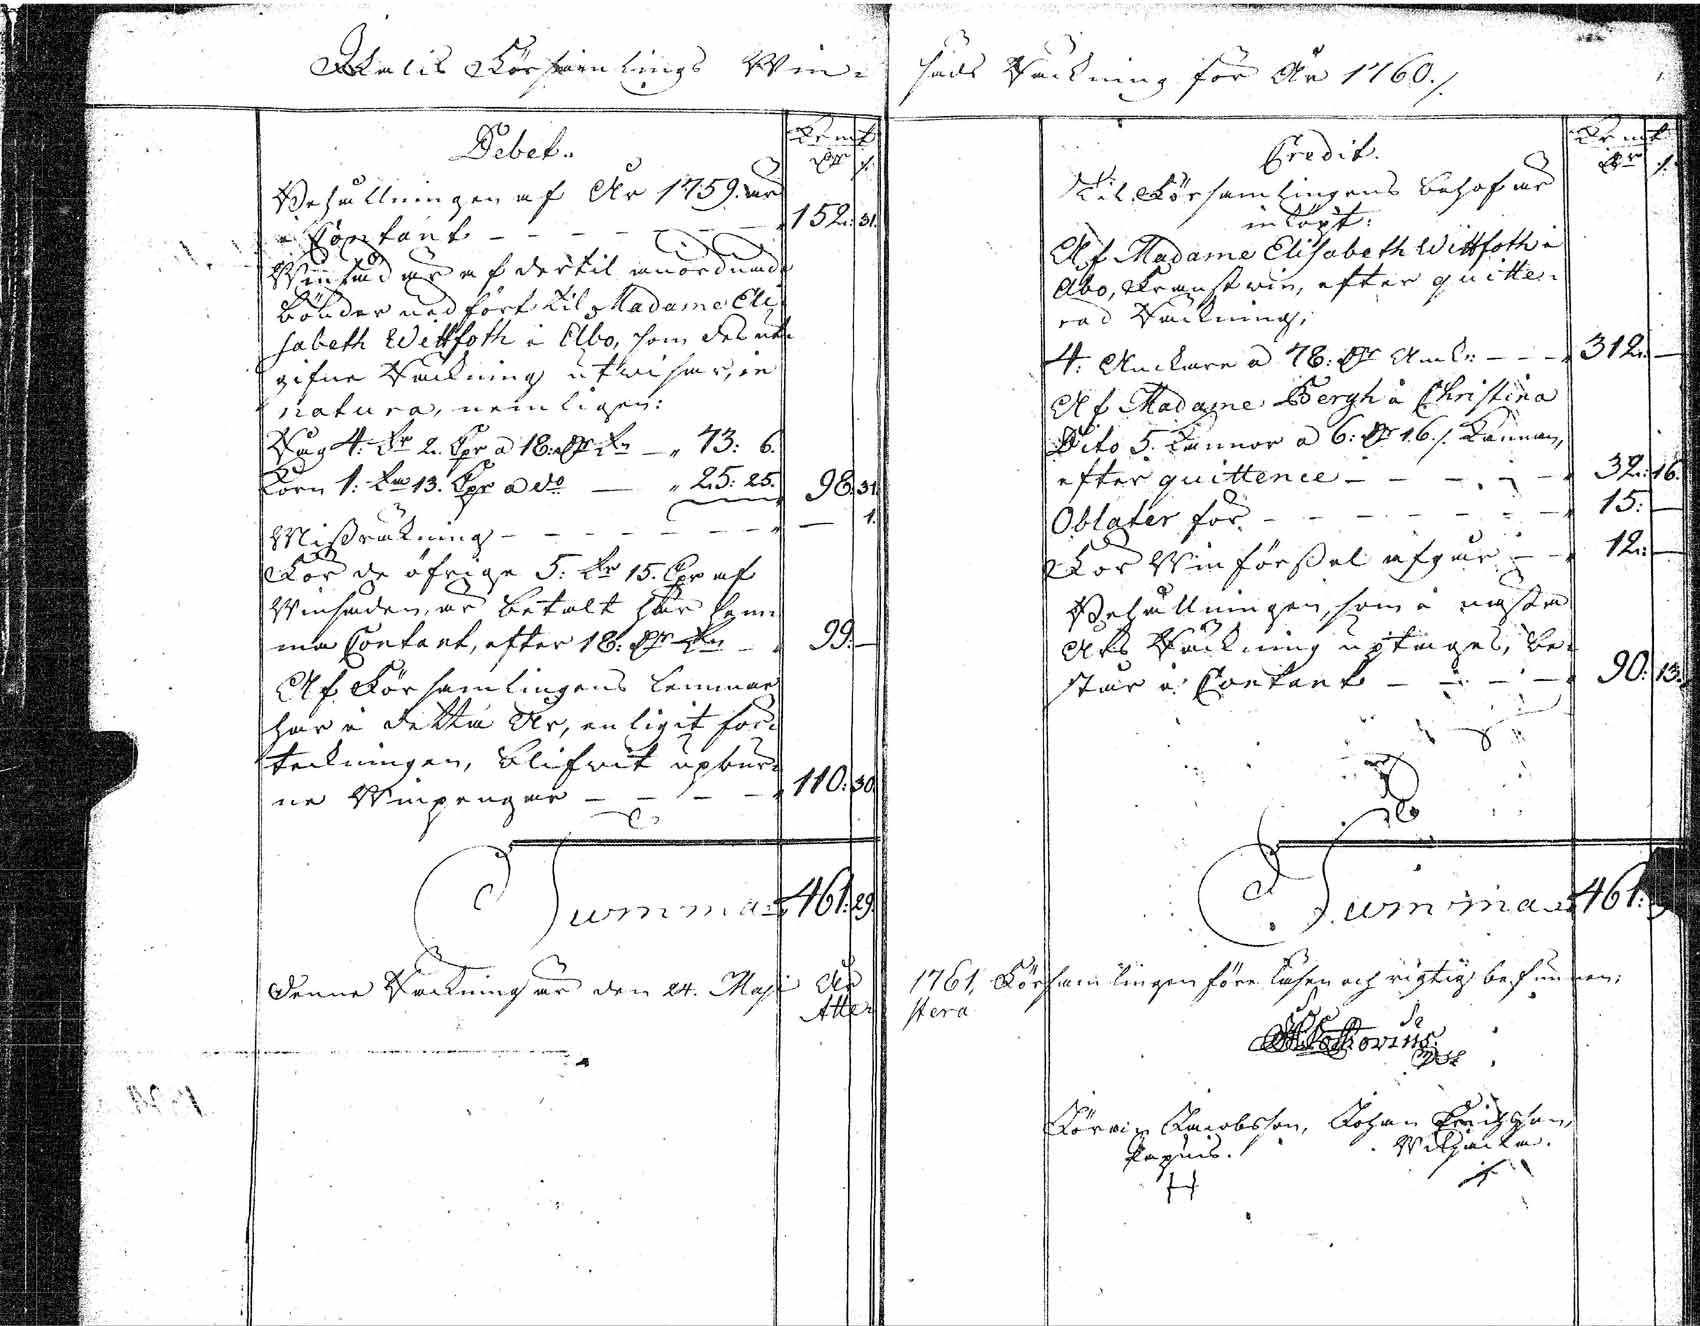 Ikalis Församlings Win-
säds Räckning för År 1760./.
Debet.
Kr mt
Dr /.
Behållningen af År 1759. är
i Contant - - - - - - 152: 31.
Winsäd är af dertil anordnade
Bönder nedfört til Madame Eli
sabeth Wittfoth i Åbo, som des ut-
gifne Räckning utwisar, in
natura, nemligen:
Råg 4. Tr 2. Kpr a 18: Dr Tn — „ 73: 6.
Korn 1: Tna 13. Kpr a do — „ 25: 25. 98: 31.
Missräkning - - - - - - — 1.
För de öfrige 5: Tr 15. Kpr af
Winsäden, är betalt här hem
ma Contant, efter 18: Dr Tn - 99: —
Af Församlingens lemmar
har i detta År, enligit för-
tekningen, blifwit upbur-
ne Winpengar - - - - 110: 30.
Summa 461: 29.
Credit.
Kr mt
Dr /.
Til Församlingens behof är
inköpt:
Af Madame Elisabeth Wittfoth i
Åbo, Franskt win, efter quitte-
rad Räckning,
4: Anckare a 78: Dr Anck: - - - 312: —
Af Madame Bergh i Christina
Dito 5. Kannor a 6: Dr 16./. Kannan,
efter quittence - - - - - 32: 16.
Oblater för - - - - - - 15: —
För Winförssel afgår - - 12: —
Behållningen, som i nästa
Års Räckning uptages, be-
står i Contant - - - - 90: 13.
Summa 461:
Denne Räckning är den 24. Maji År 1761, Församlingen föreläsen och rigtig befunnen;
Attestera
Johan Ericsson,